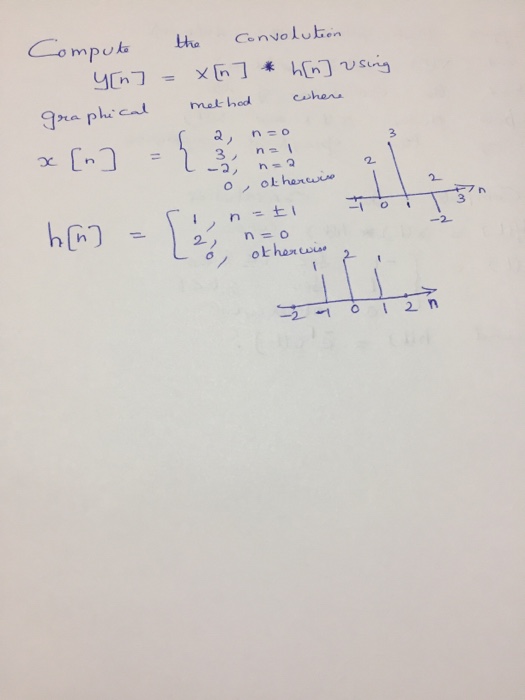 Compute the Convolution
y[n] = x[n] * h[n] using
graphical method where
x[n] = { 2, n=0
3, n=1
-2, n=2
0, otherwise
3
2
2
-1 0 1 3 n
-2
h[n] = [ 1, n = ±1
2, n=0
0, otherwise
1 2 1
-2 -1 0 1 2 n